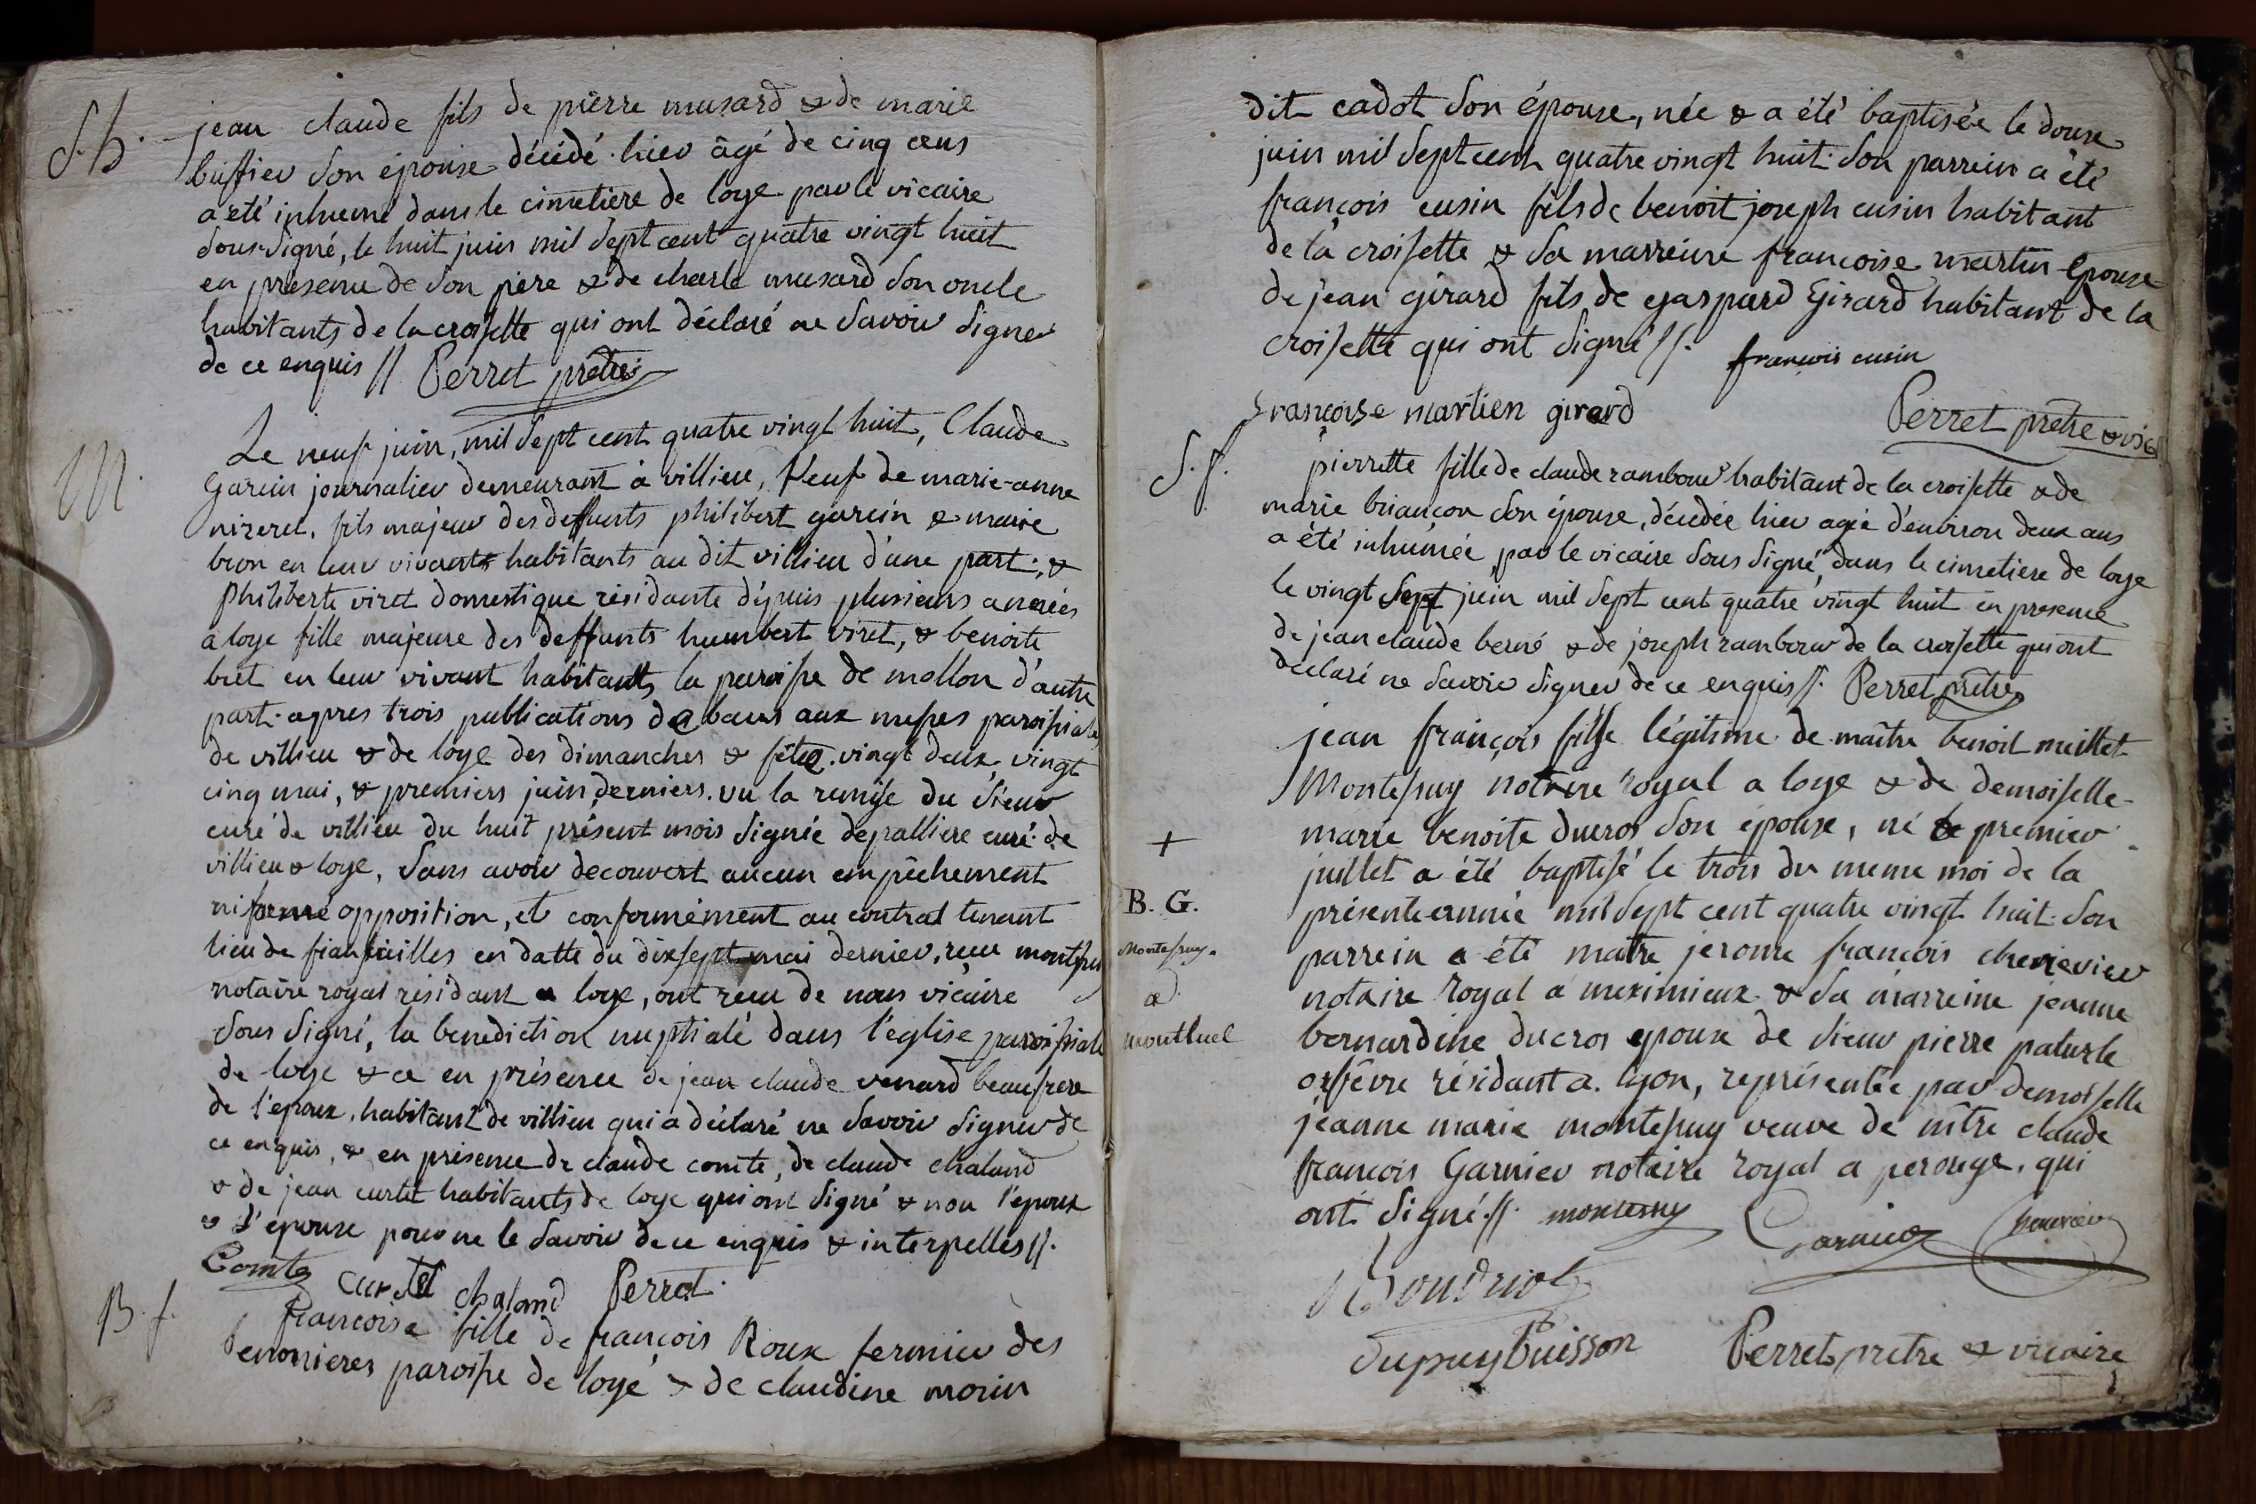 S. h.
jean claude fils de pierre musard & de marie
buffier son épouse décédé hier âgé de cinq ans
a été inhumé dans le cimetière de loye par le vicaire
sous-signé, le huit juin mil sept cent quatre vingt huit
en presence de son père & de charle musard son oncle
habitants de la croisette qui ont déclaré ne savoir signer
de ce enquis // Perret prêtre
M.
Le neuf juin, mil sept cent quatre vingt huit, Claude
Garcin journalier demeurant à villieu, veuf de marie-anne
nizeret, fils majeur des deffunts philibert garcin & marie
bron en leur vivants habitants au dit villieu d'une part, &
philiberte viret domestique résidante dépuis plusieurs années
a loye fille majeure des deffunts humbert viret, & benoite
bret en leur vivant habitants la paroisse de mollon d'autre
part. apres trois publications de bans aux messes paroissiales
de villieu & de loye des dimanches & fête vingt deux, vingt
cinq mai, & premiers juin derniers. vu la remise du sieur
curé de villieu du huit présent mois signée depalliere curé de
villieu & loye, sans avoir decouvert aucun empêchement
ni formé opposition, et conformément au contrat tenant
lieu de fiançailles en datte du dixsept mai dernier, reçu montessuy
notaire royal résidant a loye, ont reçu de nous vicaire
sous signé, la benediction nuptiale dans l'église paroissiale
de loye & ce en présence de jean claude venard beaufrere
de l'epoux, habitant de villieu qui a déclaré ne savoir signer de
ce enquis, & en présence de claude comte, de claude chaland
& de jean curtet habitants de loye qui ont signé & non l'epoux
& l'epouse pour ne le savoir de ce enquis & interpellés //.
Comte curtet chaland Perret.
B. f.
françoise fille de françois Roux fermier des
benonieres paroisse de loye & de claudine morin
dit cadot son épouse, née & a été baptisée le douze
juin mil sept cent quatre vingt huit. son parrein a été
françois cusin fils de benoit joseph cusin habitant
de la croisette & sa marreine francoise martin épouse
de jean girard fils de gaspard Girard habitant de la
croisette qui ont signé //. françois cusin
françoise martien girard
Perret prêtre & vic
S. f.
pierrette fille de claude rambour habitant de la croisette & de
marie briançon son épouse, décédée hier agée d'environ deux ans
a été inhumée par le vicaire sous signé, dans le cimetiere de loye
le vingt sept juin mil sept cent quatre vingt huit en presence
de jean claude berné & de joseph rambour de la croisette qui ont
déclaré ne savoir signer de ce enquis //. Perret prêtre
jean françois fils légitime de maître benoit meillet
Montessuy notaire royal a loye & de demoiselle
+
marie benoite ducros son épouse, né le premier
juillet a été baptisé le trois du meme moi de la
B. G.
présente année mil sept cent quatre vingt huit. son
Montessuy.
parrein a été maitre jerome françois chenevier
a
notaire royal a meximieux & sa marreine jeanne
montluel
bernardine ducros epouse de sieur pierre paturle
orfêvre résidant a lyon, représentée par demoiselle
jeanne marie montessuy veuve de mtre claude
françois Garnier notaire royal a perouge, qui
ont signé. //. montessuy Garnier chenevier
dupuy buisson Perret prêtre & vicaire